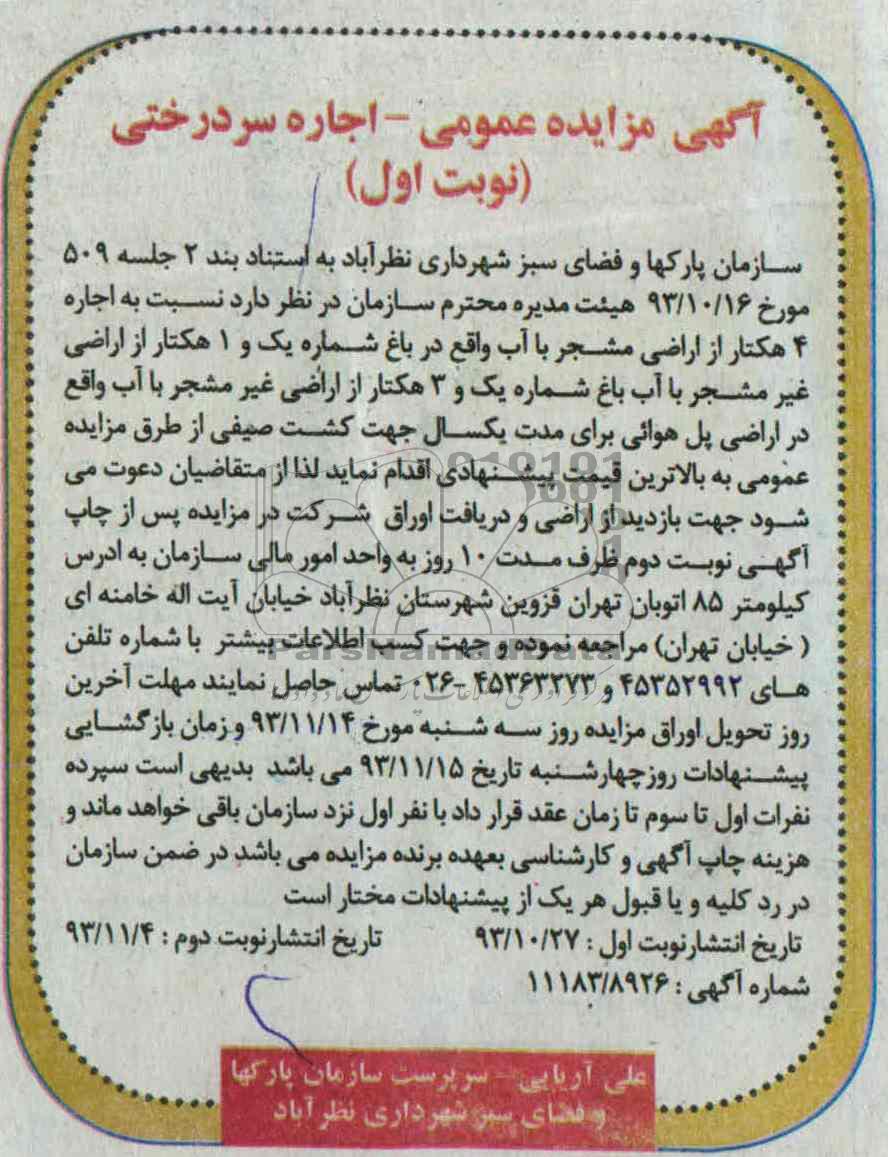 آگهی مزایده عمومی - اجاره سردرختی
(نوبت اول)
سازمان پارکها و فضای سبز شهرداری نظرآباد به استناد بند ۲ جلسه ۵۰۹
مورخ ۹۳/۱۰/۱۶ هیئت مدیره محترم سازمان در نظر دارد نسبت به اجاره
۴ هکتار از اراضی مشجر با آب واقع در باغ شماره یک و ۱ هکتار از اراضی
غیر مشجر با آب باغ شماره یک و ۳ هکتار از اراضی غیر مشجر با آب واقع
در اراضی پل هوائی برای مدت یکسال جهت کشت صیفی از طرق مزایده
عمومی به بالاترین قیمت پیشنهادی اقدام نماید لذا از متقاضیان دعوت می
شود جهت بازدید از اراضی و دریافت اوراق شرکت در مزایده پس از چاپ
آگهی نوبت دوم ظرف مدت ۱۰ روز به واحد امور مالی سازمان به ادرس
کیلومتر ۸۵ اتوبان تهران قزوین شهرستان نظرآباد خیابان آیت اله خامنه ای
( خیابان تهران) مراجعه نموده و جهت کسب اطلاعات بیشتر با شماره تلفن
های ۴۵۳۵۲۹۹۲ و ۴۵۳۶۳۲۷۳ -۰۲۶ تماس حاصل نمایند مهلت آخرین
روز تحویل اوراق مزایده روز سه شنبه مورخ ۹۳/۱۱/۱۴ و زمان بازگشایی
پیشنهادات روزچهارشنبه تاریخ ۹۳/۱۱/۱۵ می باشد بدیهی است سپرده
نفرات اول تا سوم تا زمان عقد قرار داد با نفر اول نزد سازمان باقی خواهد ماند و
هزینه چاپ آگهی و کارشناسی بعهده برنده مزایده می باشد در ضمن سازمان
در رد کلیه و یا قبول هر یک از پیشنهادات مختار است
تاریخ انتشارنوبت اول : ۹۳/۱۰/۲۷ تاریخ انتشارنوبت دوم : ۹۳/۱۱/۴
شماره آگهی : ۱۱۱۸۳/۸۹۲۶
علی آریایی - سرپرست سازمان پارکها
و فضای سبز شهرداری نظرآباد
ParsNamadData